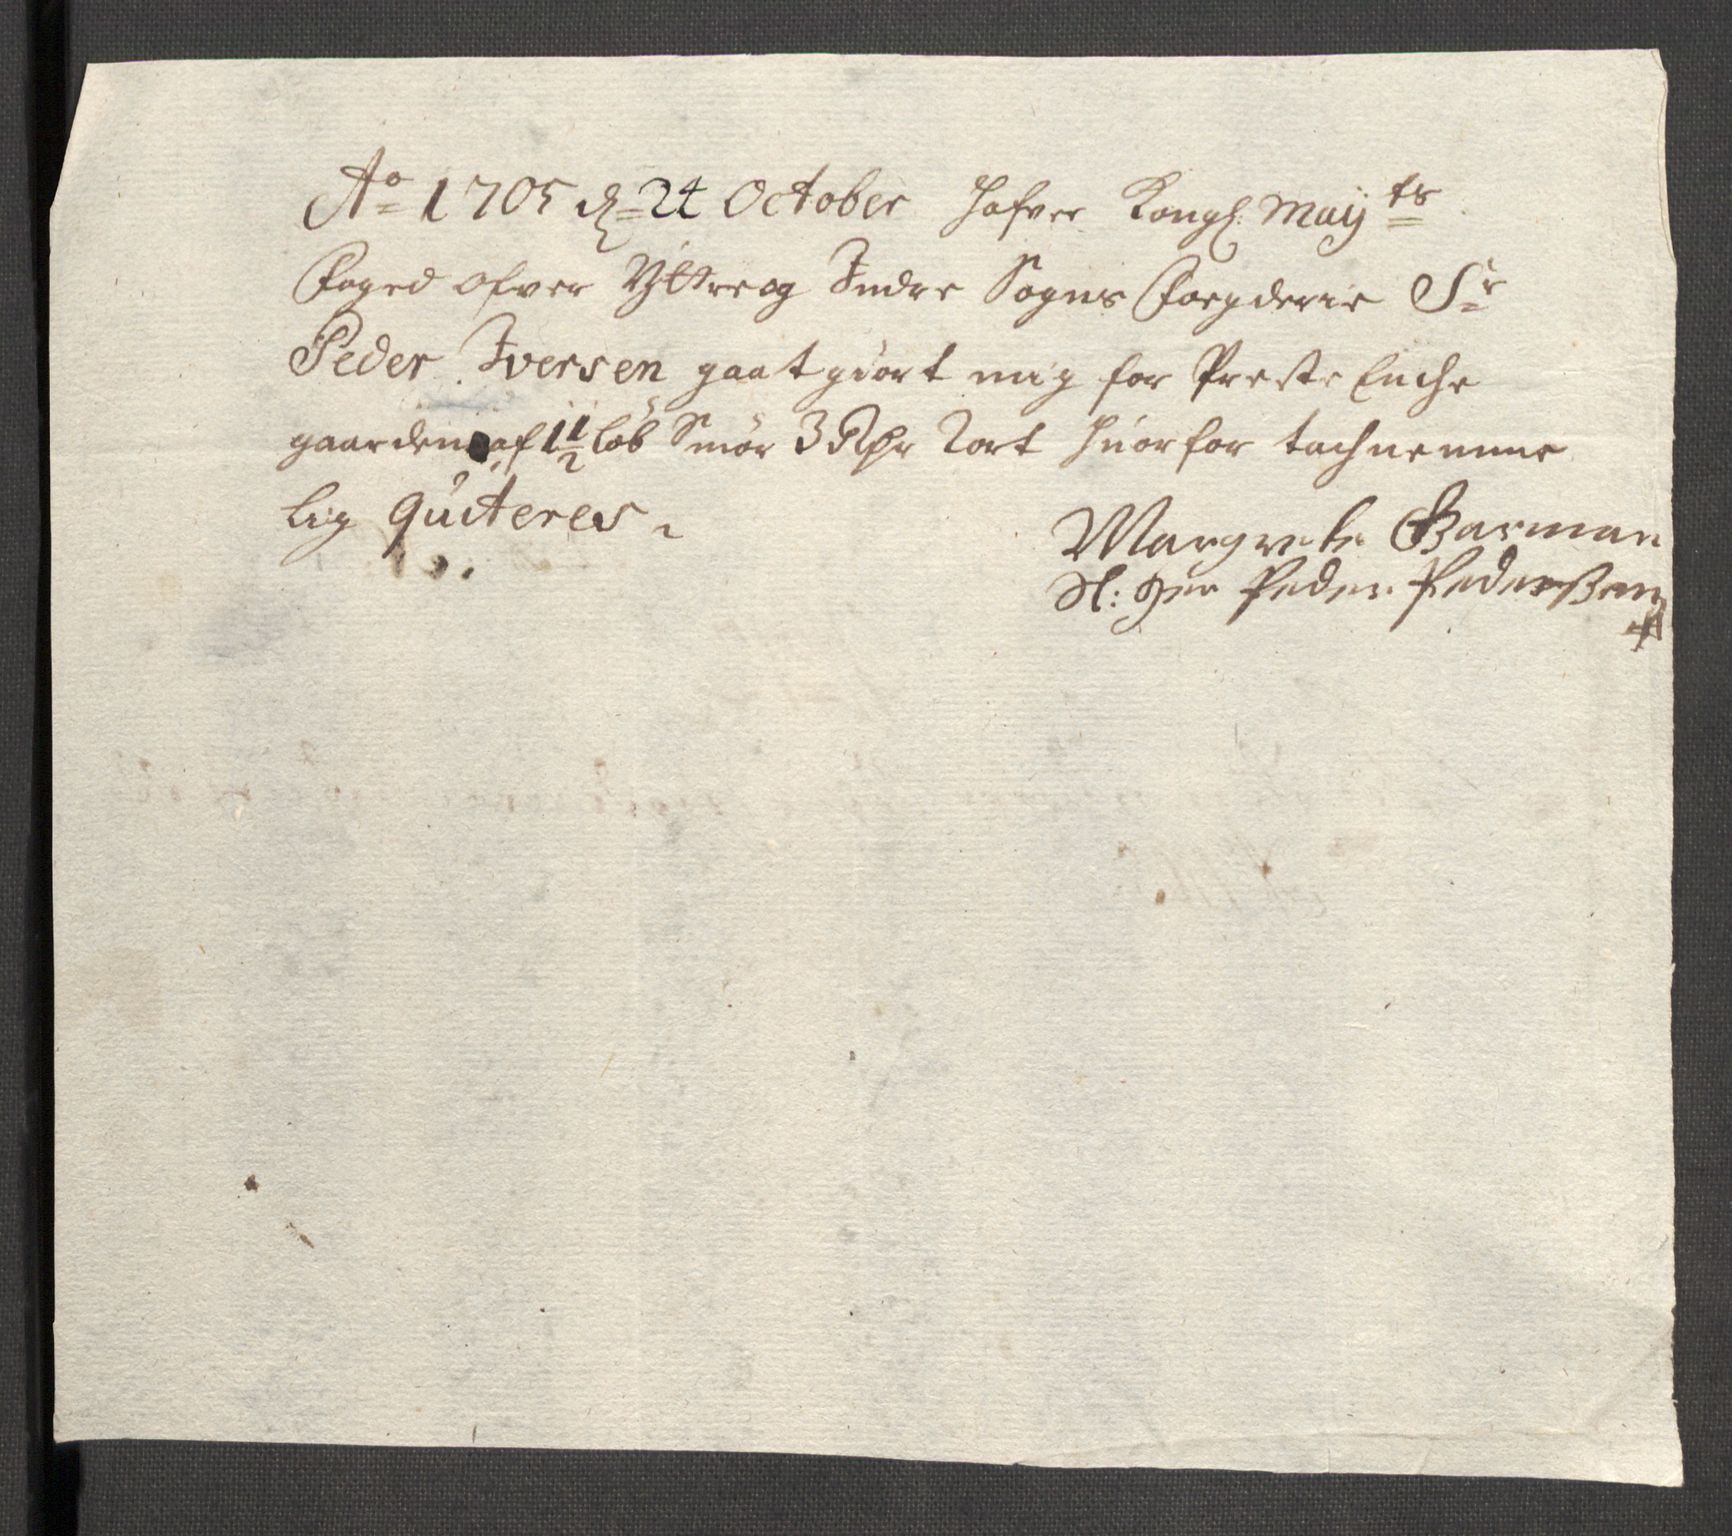 Ao 1705 d 24 October hafver Kongl: Maijts
Foged ofver Yttre og Indre Sogns Foegderie Sr
Peder Iversen gaat giort mig for Preste Enche
gaarden af 1 1/2 löb Smör 3 Rdr 2 ort huorfor tachnemme
lig quiteres
Margrete Garman
Sl: Her Peder Pederßens